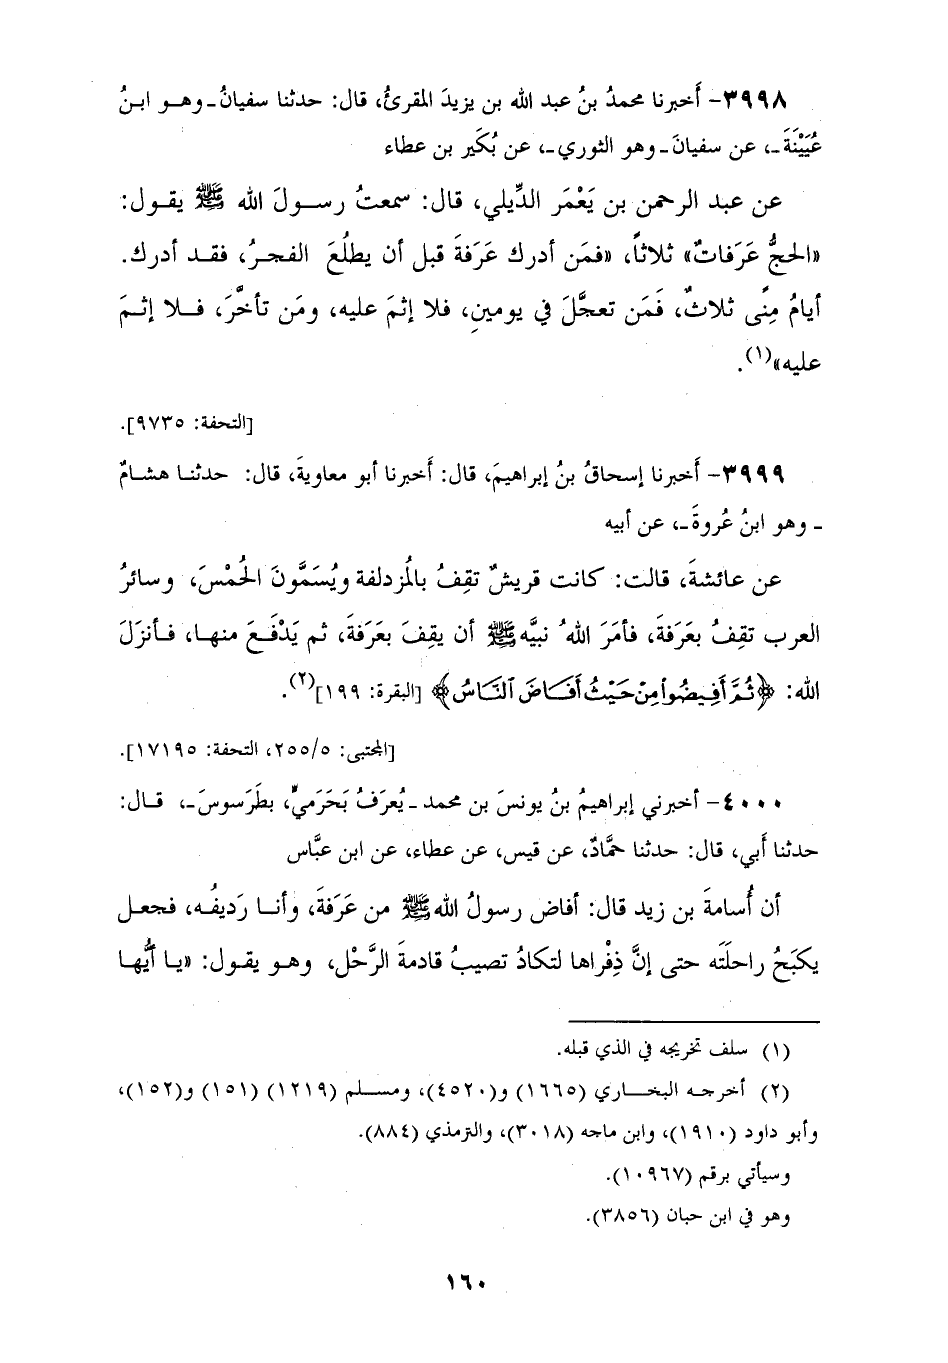 ٣٩٩٨- أَخبرنا محمدُ بنُ عبد الله بن يزيدَ المقرئُ، قال: حدثنا سفيانُ ـ وهـو ابـنُ
عُيَيْنَةَ ـ، عن سفيانَ ـ وهو الثوري ـ، عن بُكَير بن عطاء
عن عبد الرحمن بن يَعْمَر الدِّيلي، قال: سمعتُ رسـولَ الله ﷺ يقـول:
«الحجُّ عَرَفاتٌ» ثلاثاً، «فمَن أدرك عَرَفةَ قبل أن يطلُعَ الفجـرُ، فقـد أدرك.
أيامُ مِنًى ثلاثٌ، فَمَن تعجَّلَ في يومينِ، فلا إثمَ عليه، ومَن تأخَّرَ، فـلا إثـمَ
عليه»(١).
[التحفة: ٩٧٣٥].
٣٩٩٩- أَخبرنا إسحاقُ بنُ إبراهيمَ، قال: أَخبرنا أبو معاويةَ، قال: حدثنـا هشـامٌ
ـ وهو ابنُ عُروةَ ـ، عن أبيه
عن عائشةَ، قالت: كانت قريشٌ تقِفُ بالمُزدلفة ويُسَمَّونَ الحُمْسَ، وسائرُ
العرب تقِفُ بعَرَفةَ، فأمَرَ اللهُ نبيَّه ﷺ أن يقِفَ بعَرَفةَ، ثم يَدْفَعَ منهـا، فـأنزَلَ
الله: ﴿ثُمَّ أَفِيضُواْ مِنْ حَيْثُ أَفَاضَ ٱلنَّاسُ﴾ [البقرة: ١٩٩](٢).
[المجتبى: ٢٥٥/٥، التحفة: ١٧١٩٥].
٤٠٠٠- أخبرني إبراهيمُ بنُ يونسَ بن محمد ـ يُعرَفُ بحَرَميٍّ، بطَرَسوسَ ـ، قـال:
حدثنا أَبي، قال: حدثنا حمَّادٌ، عن قيس، عن عطاء، عن ابن عبَّاس
أن أُسامةَ بن زيد قال: أفاض رسولُ الله ﷺ من عَرَفةَ، وأنـا رَديفُـه، فجعـل
يكبَحُ راحلَتَه حتى إنَّ ذِفْراها لتكادُ تصيبُ قادمةَ الرَّحْل، وهـو يقـول: «يـا أيُّهـا
(١) سلف تخريجه في الذي قبله.
(٢) أخرجـه البخـاري (١٦٦٥) و(٤٥٢٠)، ومسـلم (١٢١٩) (١٥١) و(١٥٢)،
وأبو داود (١٩١٠)، وابن ماجه (٣٠١٨)، والترمذي (٨٨٤).
وسيأتي برقم (١٠٩٦٧).
وهو في ابن حبان (٣٨٥٦).
١٦٠